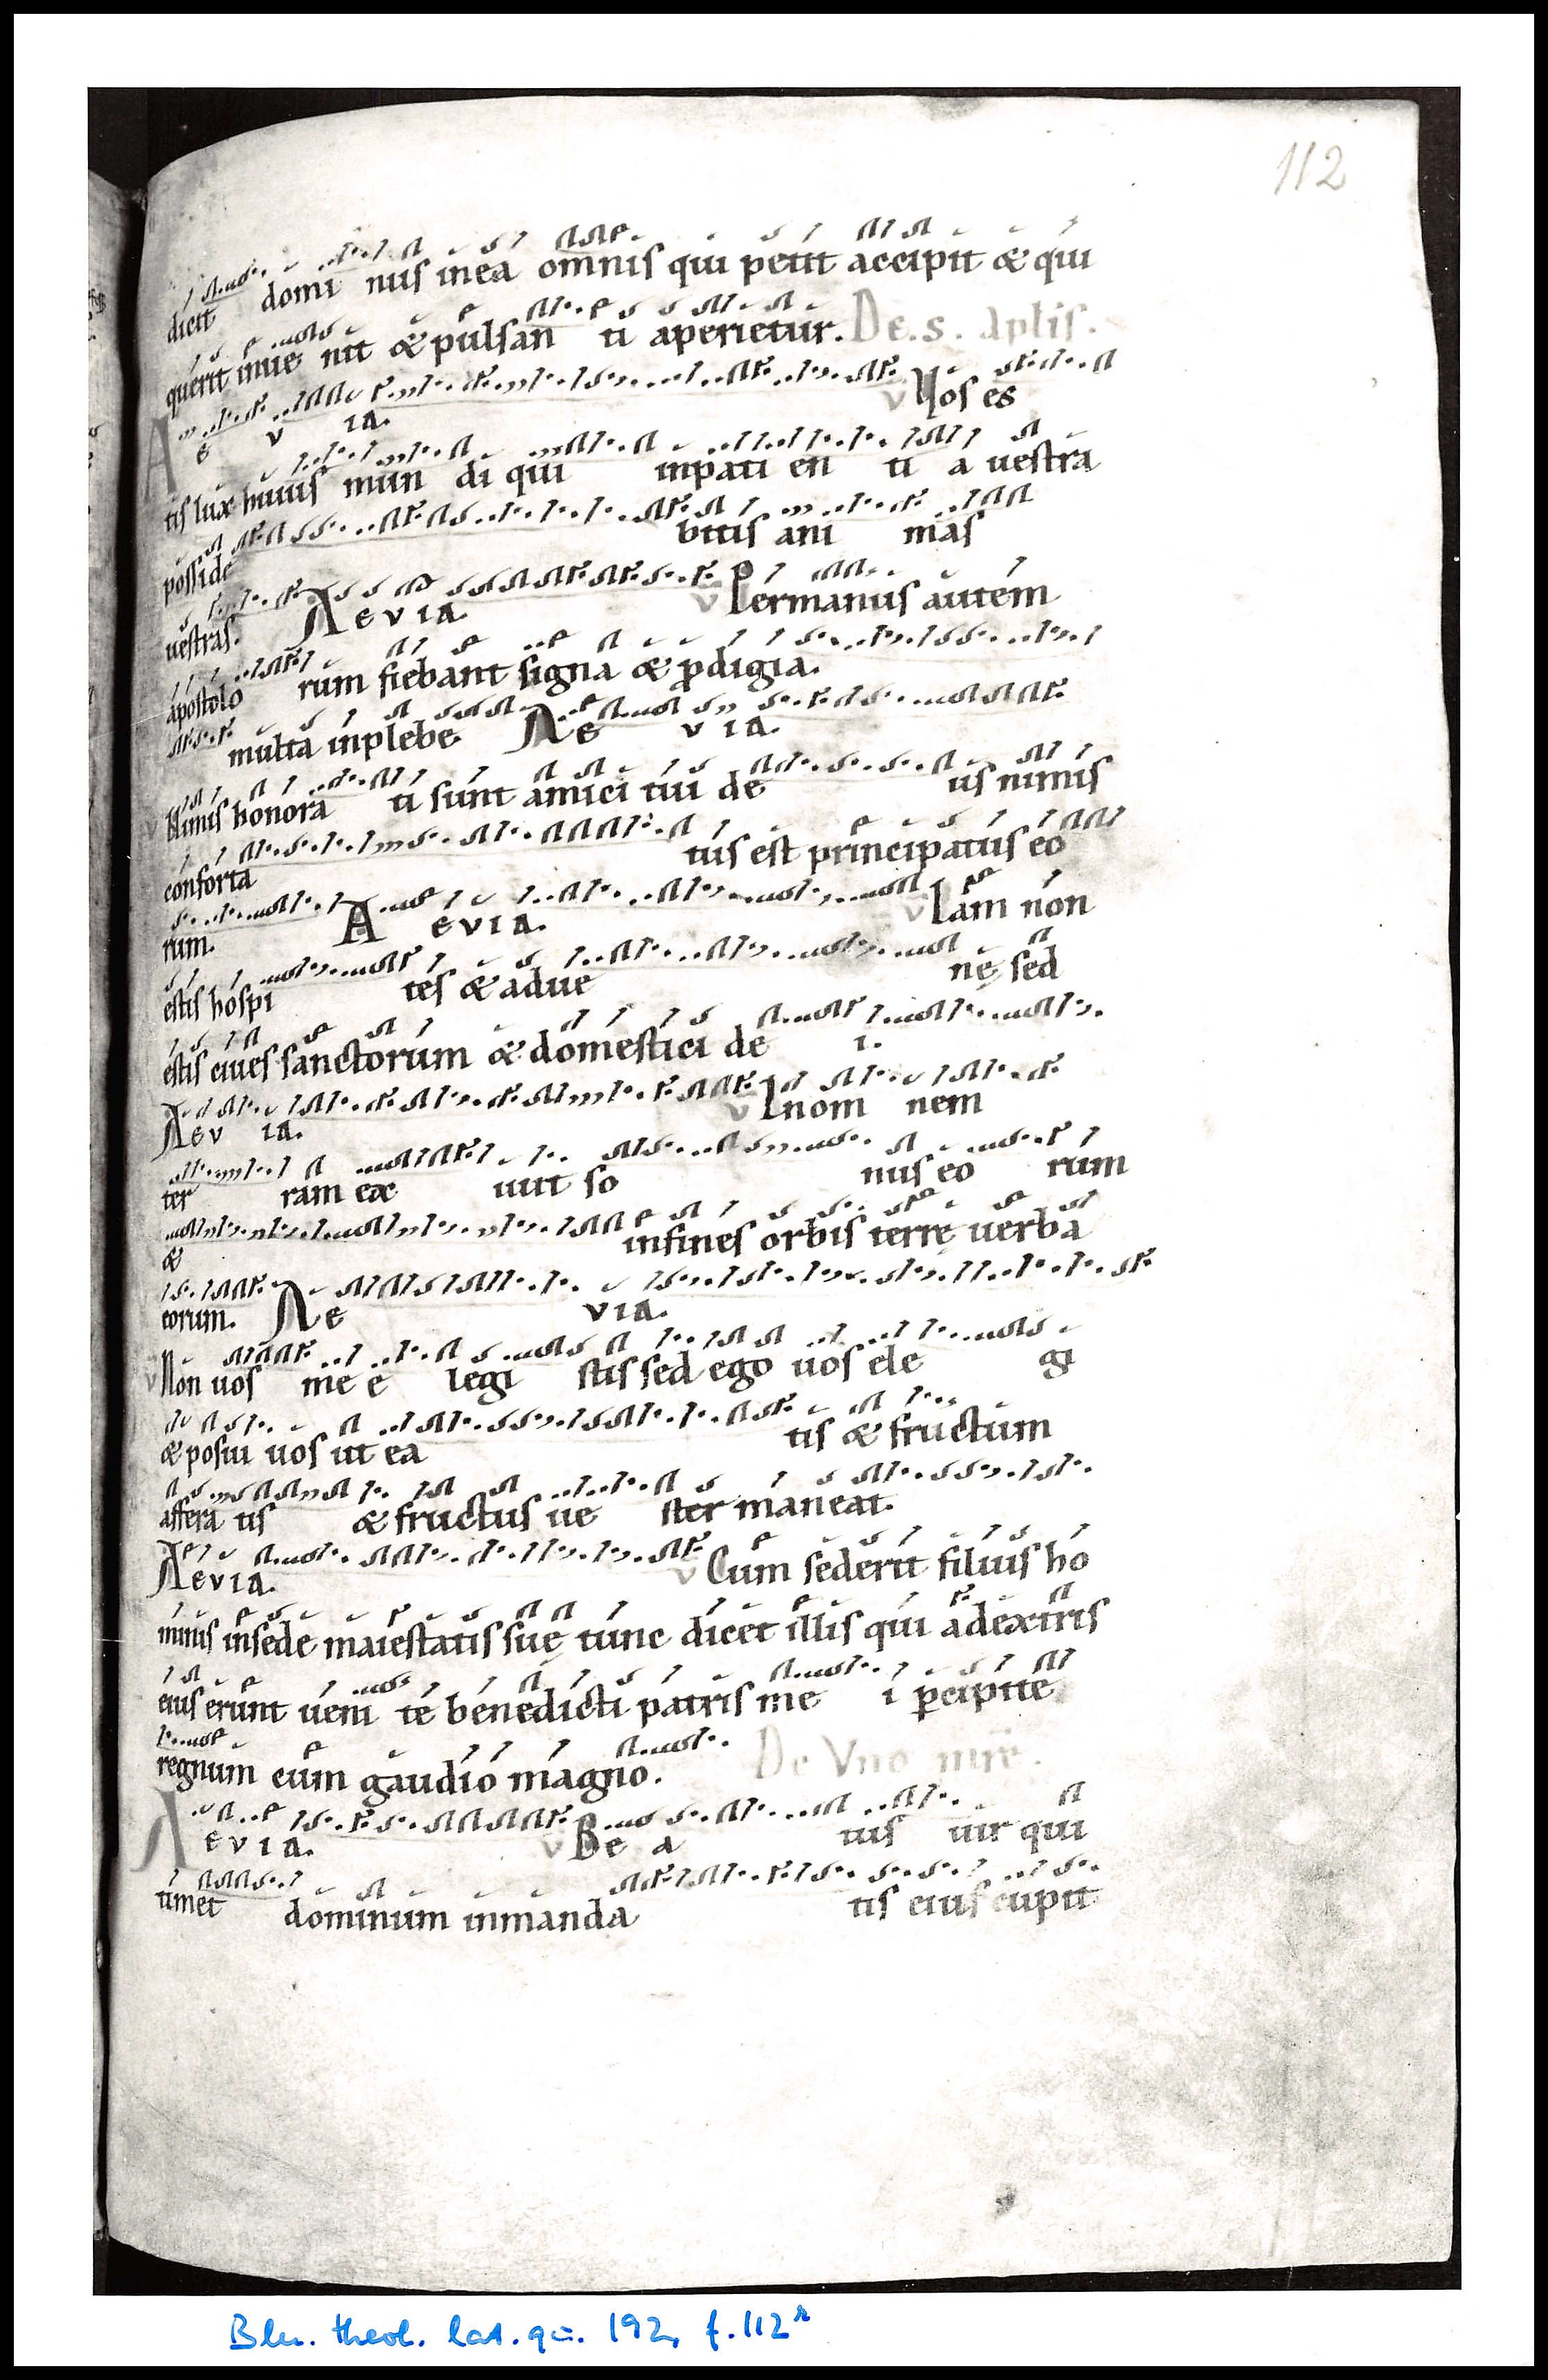 112
dicit domi nus in ea omnis qui petit accipit & qui
querit inue nit & pulsan ti aperietur. De.s. aplis.
A e v ia. v Vos es
tis lux huius mun di qui inpati en ti a uestra
posside bitis ani mas
uestras. Aevia. v Per manus autem
apostolo rum fiebant signa & pdigia.
multa inplebe Ae via.
v Nimis honora ti sunt amici tui de us nimis
conforta tus est principatus eo
rum. A evia. v Iam non
estis hospi tes & adue nę sed
estis ciues sanctorum & domestici de i.
Aev ia. v In om nem
ter ram ex iuit so nus eo rum
& infines orbis terrę uerba
eorum. Ae via.
v Non uos me e legi stis sed ego uos ele gi
& posui uos ut ea tis & fructum
affera tis & fructus ue ster maneat.
Aevia. v Cum sederit filius ho
minis insede maiestatis suę tunc dicet illis qui adextris
eius erunt ueni te benedicti patris me i pcipite
regnum cum gaudio magno. De Vno mre.
A evia. v Be a tus uir qui
timet dominum inmanda tis eius cupit
Bln. theol. lat. qu. 192, f. 112r